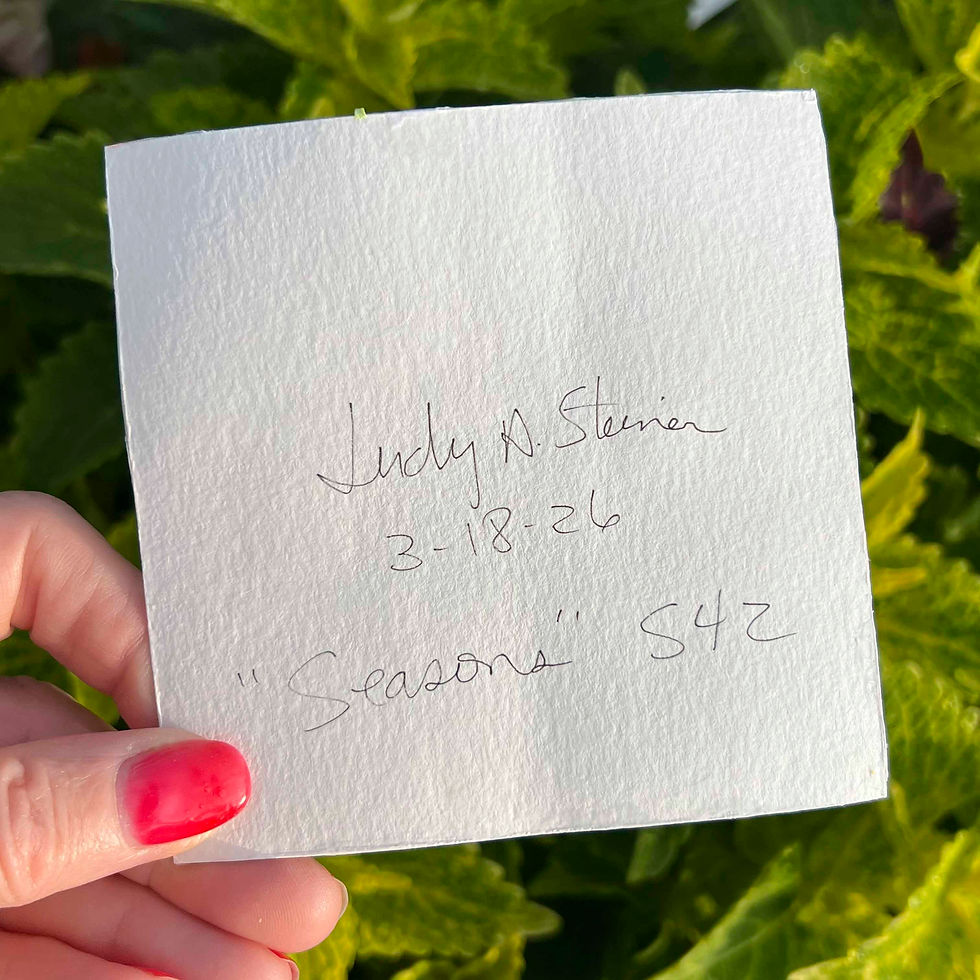 Judy A. Steiner
3-18-26
"Seasons" S42